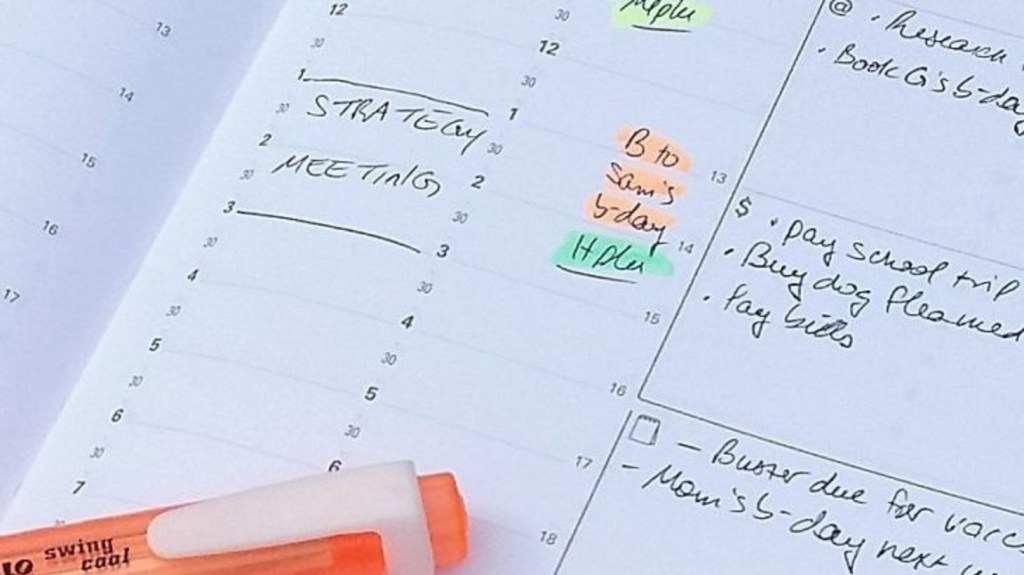 13
14
15
16
17
12
30
1
30
STRATEGY
2
MEETING
30
3
30
4
30
5
30
6
30
7
30
12
30
1
30
2
30
3
30
4
30
5
30
6
B to
Sam's
b-day
13
14
15
16
17
18
@ • Research
• Book G's b-day
$ • pay school trip
• Buy dog
• Pay bills
- Buster due for vacc
- Mom's b-day next
swing
cool